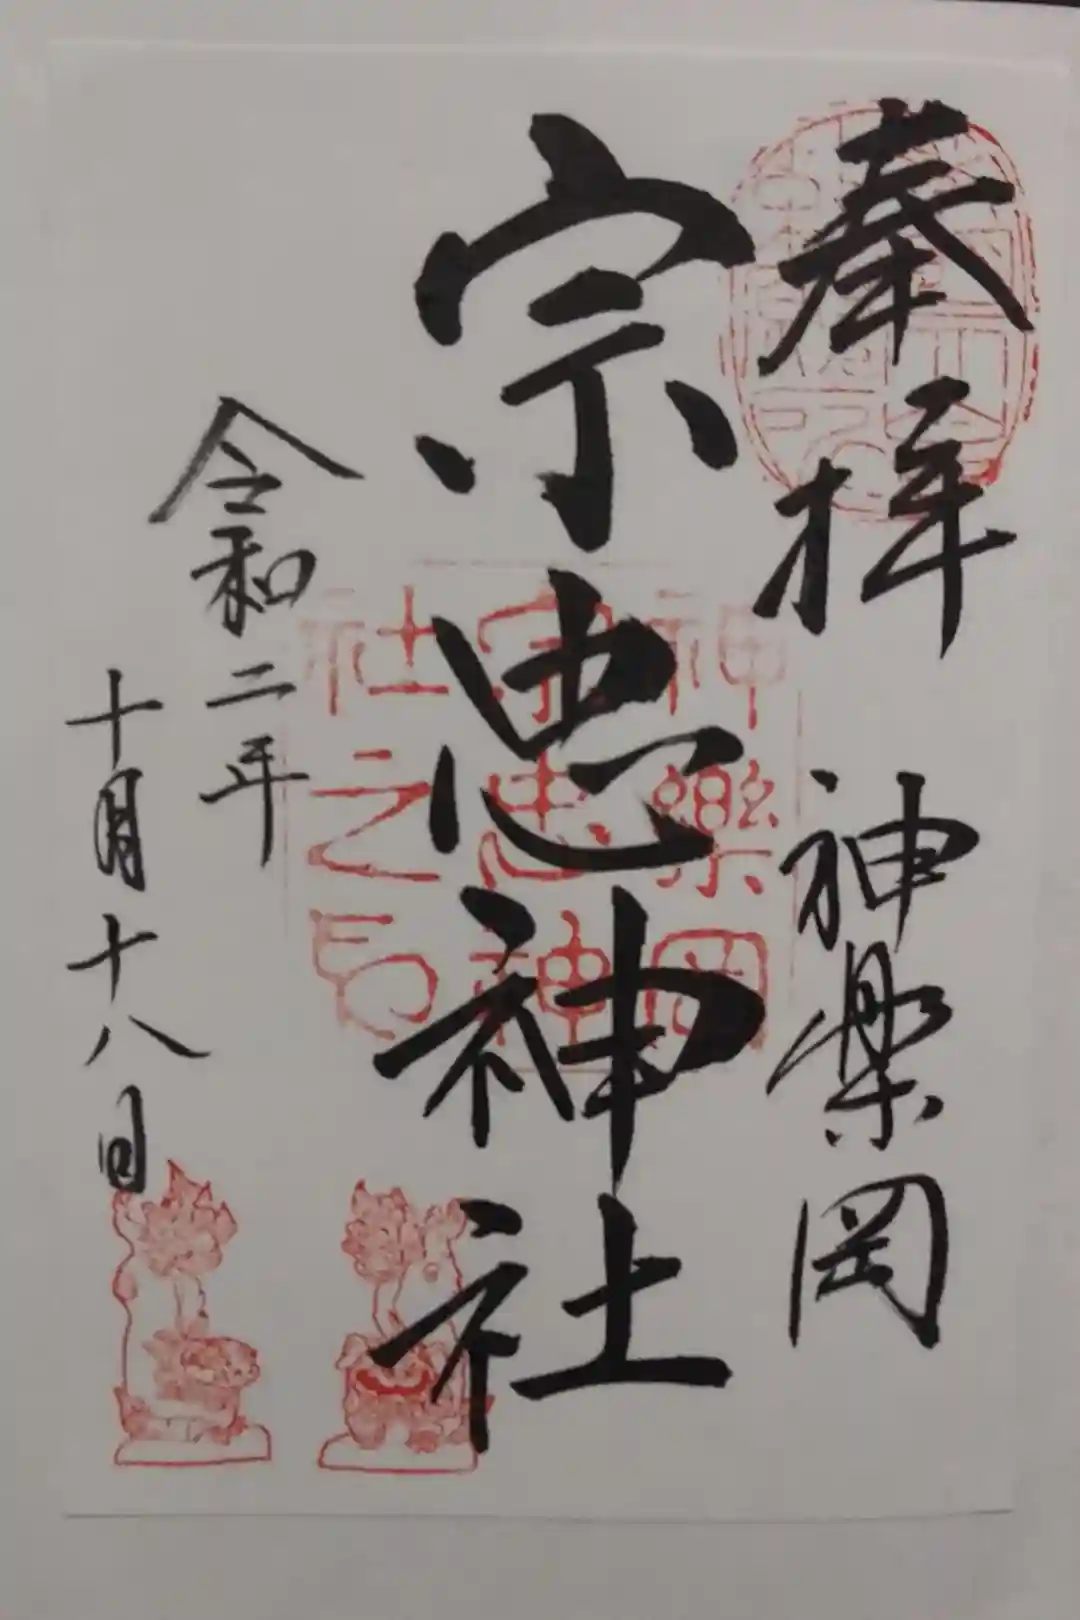 奉拝 神楽岡
宗忠神社
令和二年
十月十八日
神樂岡
宗忠神
社之印